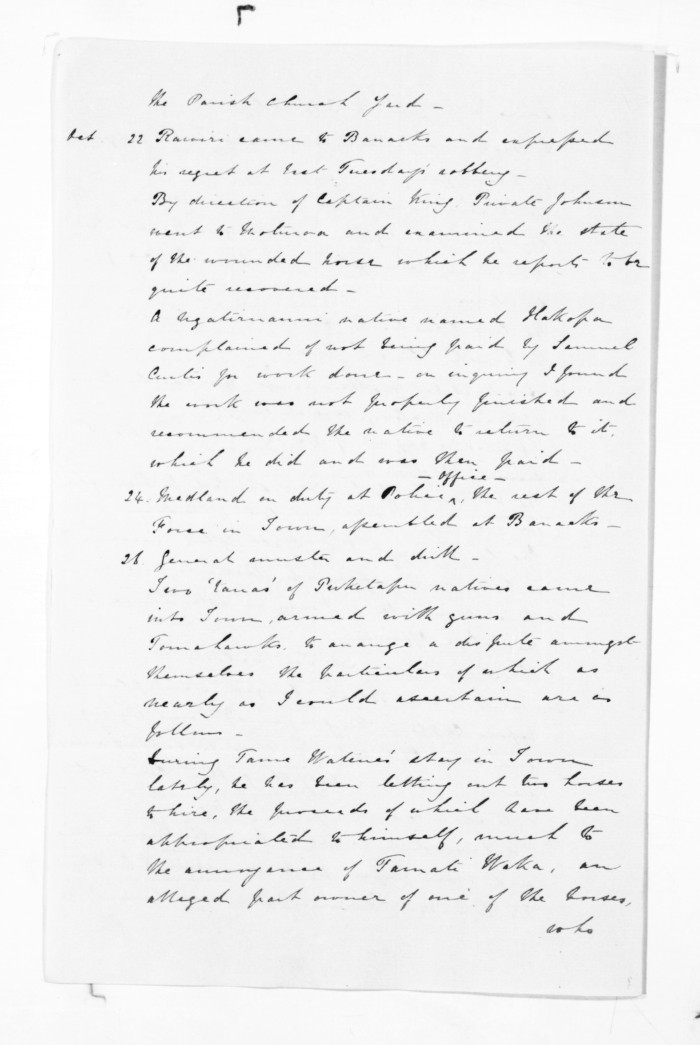 the Parish Church Yard -
Oct 22 Rawiri came to Barracks and expressed
his regret at last Tuesday's robbery -
By direction of Captain King Private Johnson
went to Moturoa and examined the state
of the wounded horse which he reports to be
quite recovered -
A Ngatiruanui native named Hakopa
complained of not being paid by Samuel
Curtis for work done - on inquiry I found
the work was not properly finished and
recommended the native to return to it,
which he did and was then paid -
- Office -
24. Medland on duty at Police ^, the rest of the
Force in Town, assembled at Barracks -
26. General muster and drill -
Two of Puketapu natives came
into Town, armed with guns and
Tomahawks, to arrange a dispute amongst
themselves the particulars of which as
nearly as I could ascertain are as
follows -
During Tamati Watene's stay in Town
lately, he has been letting out two horses
to hire, the proceeds of which have been
appropriated to himself, much to
the annoyance of Tamati Waka, an
alleged part owner of one of the horses,
who